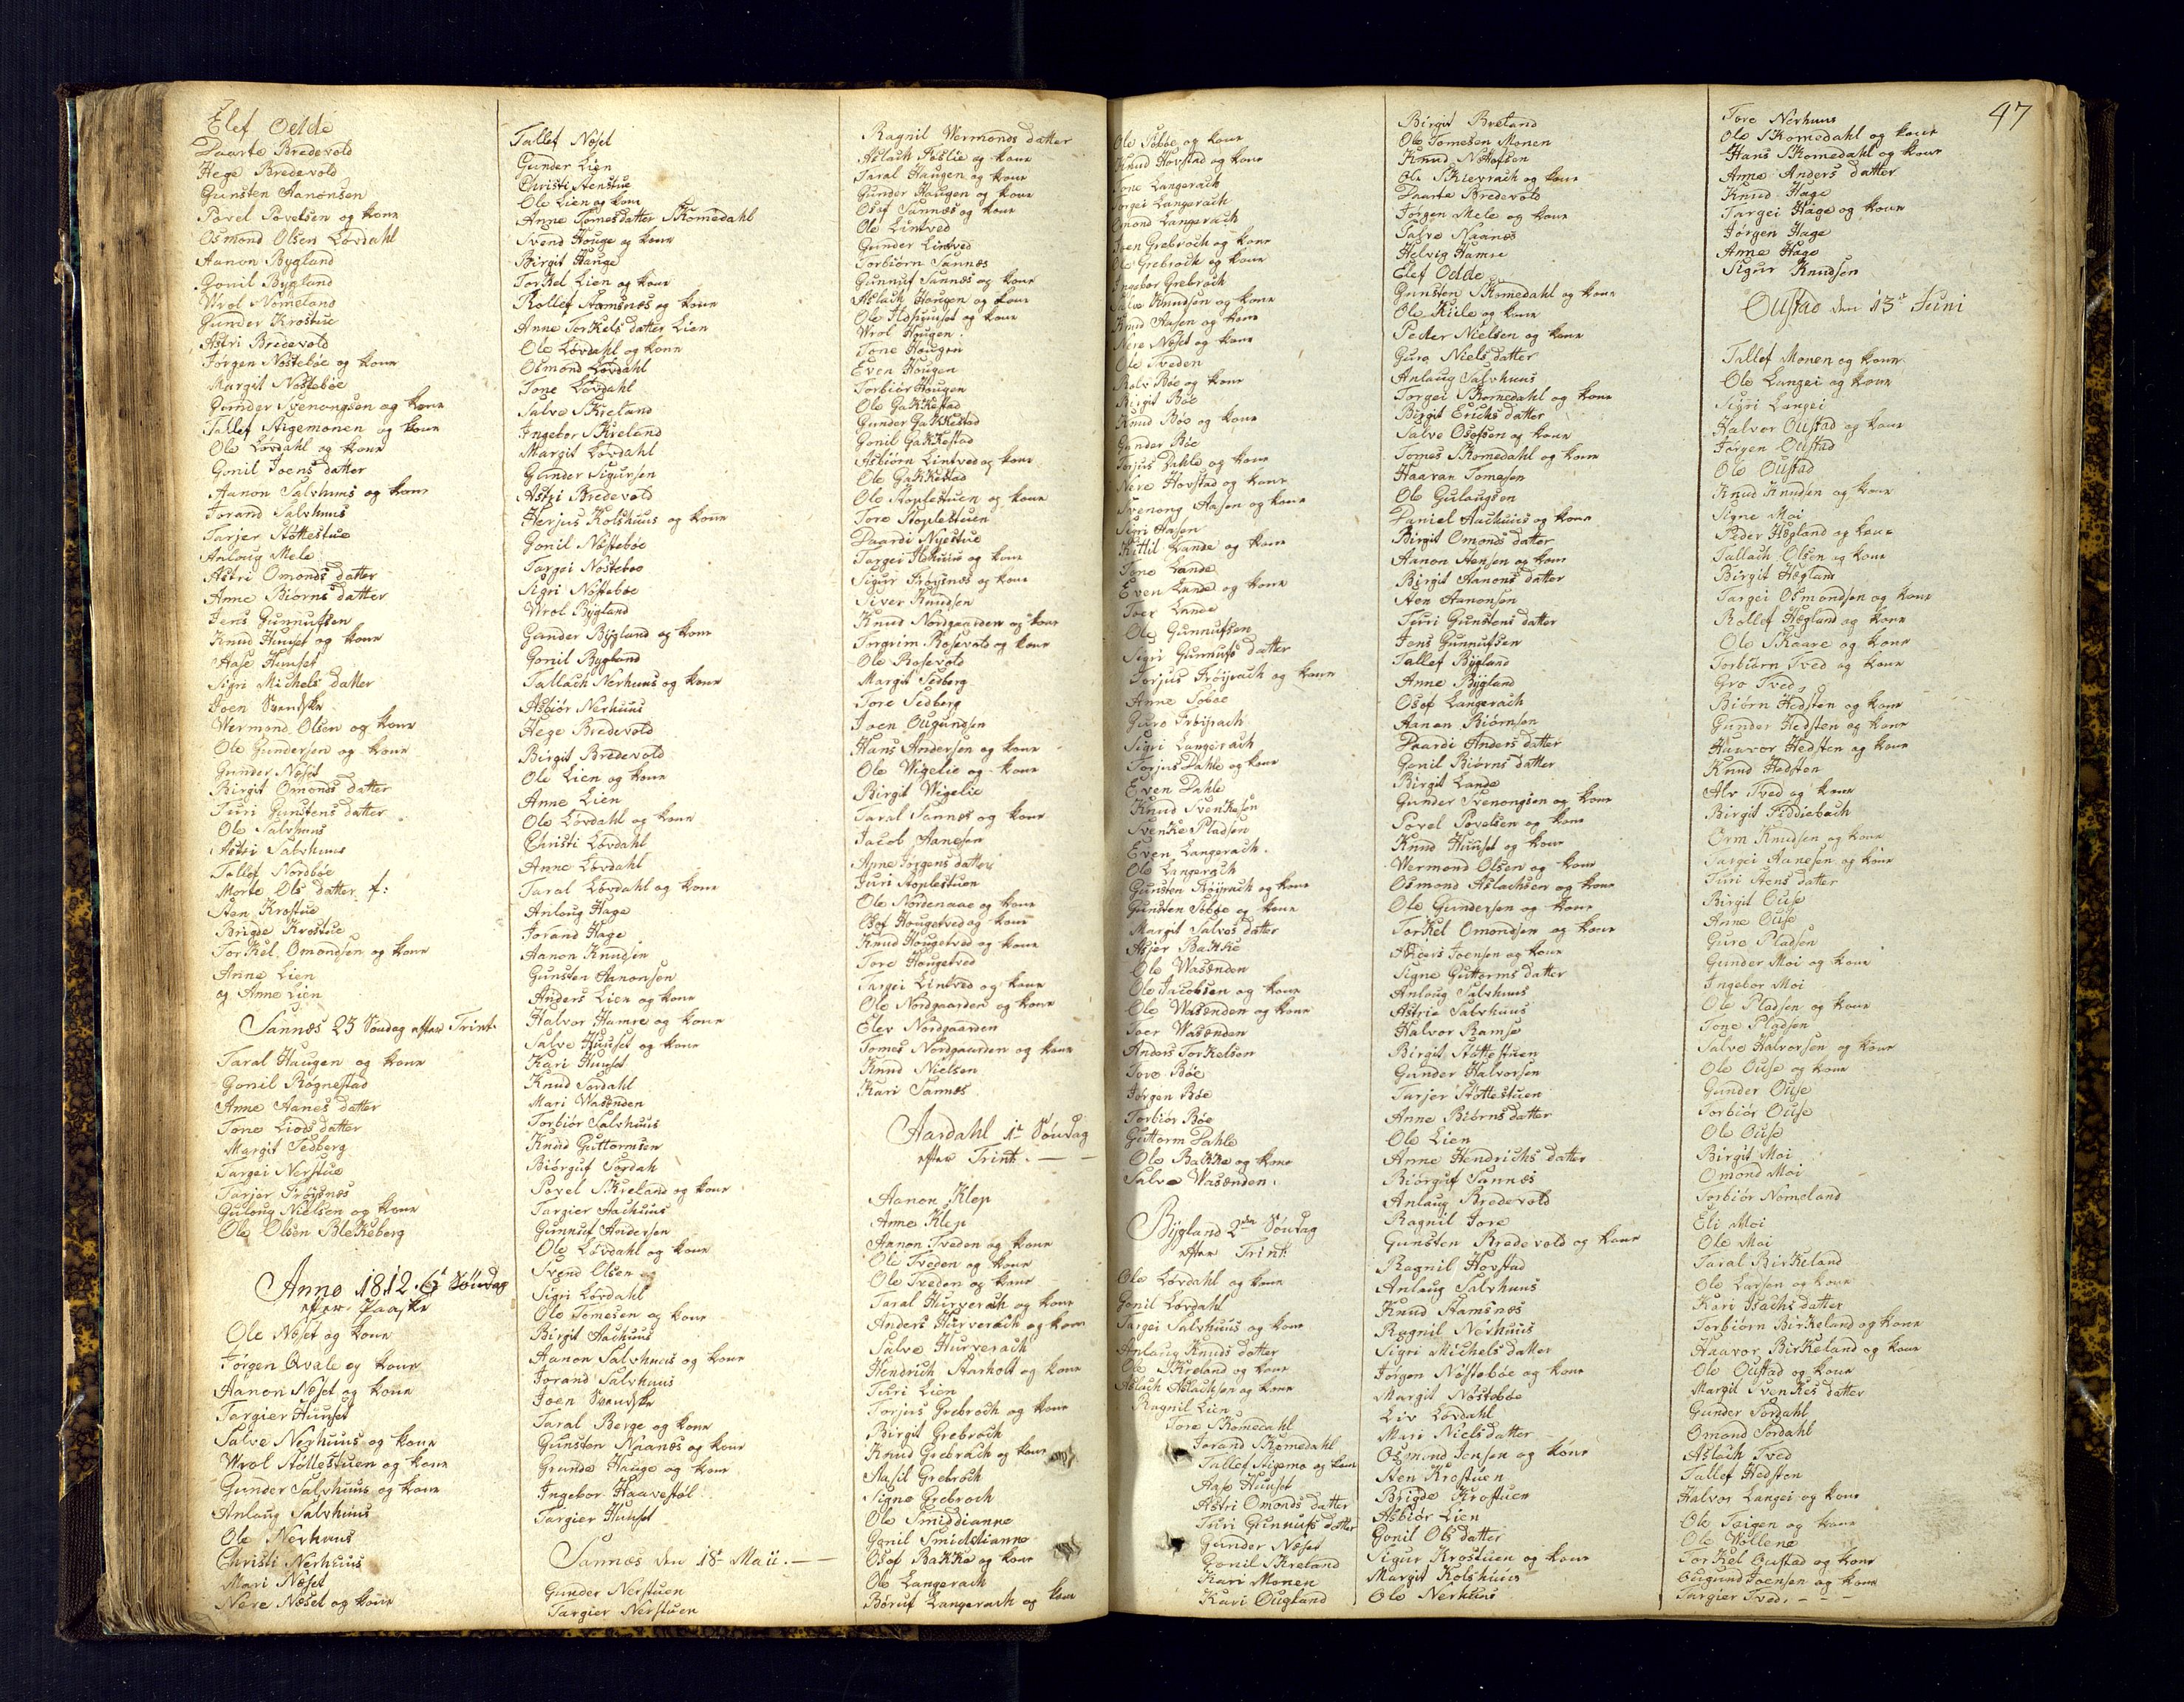 Elef Odde
Daarte Bredevold
Hege Bredevold
Gunsten Aanonsen
Povel Povelsen og kone
Osmond Olsen Lovdahl
Aanon Bygland
Gonil Bygland
Wrol Nomeland
Gunder Krostue
Astri Bredevold
Jørgen Nøstebøe og kone
Margit Nøstebøe
Gunder Svenongsen og kone
Tallef Stigemonen og kone
Ole Løvdahl og kone
Gonil Joens datter
Aanon Salvhuus og kone
Jorand Salvhuus
Tarjer Støttestue
Anlaug Mele
Astri Omonds datter
Anne Biørns datter
Jens Gunnufsen
Knud Huuset og kone
Aase Huuset
Sigri Michels datter
Joen Svendske
Wermond Olsen og kone
Ole Gundersen og kone
Gunder Næset
Birgit Omonds datter
Turi Gunstens datter
Ole Salvhuus
Astri Salvhuus
Tallef Nordbøe
Morte Ols datter f:
Sten Krostue
Brigde Krostue
Torkel Omondsen og kone
Anne Lien
og Anne Lien
Sannæs 23 Søndag efter Trint.
Taral Haugen og kone
Gonil Rognestad
Anne Aanes datter
Tone Liods datter
Margit Sedberg
Targei Nerstue
Tarjer Frøysnæs
Gulaug Nielsen og kone
Ole Olsen Blekeberg
Anno 1812. 6t Søndag
efter Paaske
Ole Næset og kone
Jørgen Qvale og kone
Aanon Næset og kone
Targier Huuset
Salve Nerhuus og kone
Wrol Støttestuen og kone
Gunder Salvhuus og kone
Anlaug Salvhuus
Ole Nerhuus
Christi Nerhuus
Mari Næset
Nere Næset og kone
Tallef Næset
Gunder Lien
Christi Stenstue
Ole Lien og kone
Anne Tomesdatter Skomedahl
Svend Hauge og kone
Birgit Hauge
Torkel Lien og kone
Rollef Stamsnæs og kone
Anne Torkels datter Lien
Ole Løvdahl og kone
Osmond Løvdahl
Tone Løvdahl
Salve Skreland
Ingebor Skreland
Margit Løvdahl
Gunder Sigursen
Astri Bredevold
Herjus Kolshuus og kone
Gonil Nøstebøe
Targei Nøstebøe
Sigri Nøstebøe
Wrol Bygland
Gunder Bygland og kone
Gonil Bygland
Tallach Nerhuus og kone
Asbiør Nerhuus
Hege Bredevold
Birgit Bredevold
Ole Lien og kone
Anne Lien
Ole Løvdahl og kone
Christi Løvdahl
Anne Løvdahl
Taral Løvdahl og kone
Anlaug Hage
Jorand Hage
Aanon Knudsen
Gunsten Aanonsen
Anders Lien og kone
Halvor Hamre og kone
Salve Huuset og kone
Kari Huuset
Knud Sordahl
Mari Wasenden
Torbiør Salvhuus
Knud Guttormsen
Biørguf Sordah
Povel Skreland og kone
Targier Aachuus
Gunnuf Andersen
Ole Løvdahl og kone
Svend Olsen
Sigri Løvdahl
Ole Tomesen og kone
Birgit Aachuus
Aanon Salvhuus og kone
Jorand Salvhuus
Joen Svendske
Taral Berge og kone
Gunsten Naanæs og kone
Grunde Hauge og kone
Ingebor Haavestøl
Targier Huuset
Sannæs den 18de Maii.
Gunder Nerstuen
Targier Nerstuen
Ragnil Wermonds datter
Aslach Foslie og kone
Taral Haugen og kone
Gunder Haugen og kone
Osof Sannæs og kone
Ole Lintved
Gunder Lintved
Torbiørn Sannæs
Gunnuf Sannæs og kone
Aslach Haugen og kone
Wrol Haugen
Tone Haugen
Even Haugen
Torbiør Haugen
Ole Gakkestad
Gunder Gakkestad
Gonil Gakkestad
Asbiørn Lintved og kone
Ole Gakkestad
Ole Stoplestuen og kone
Tore Stoplestuen
Daardi Nyestue
Sigur Frøysnæs og kone
Siver Knudsen
Knud Nordgaarden og kone
Torgrim Rosevold og kone
Ole Rosevold
Margit Sedberg
Tore Sedberg
Joen Ougundsen
Hans Andersen og kone
Ole Wigelie og kone
Birgit Wigelie
Taral Sannæs og kone
Jacob Aanesen
Anne Jørgens datter
Turi Stoplestuen
Ole Nordenaae og kone
Osof Hougetved og kone
Knud Hougetved og kone
Tore Hougetved
Targei Lintved og kone
Ole Nordgaarden og kone
Elev Nordgaarden
Tomes Nordgaarden og kone
Knud Nielsen
Kari Sannæs
Aardahl 1t Søndag
efter Trint.
Aanon Klep
Anne Klep
Aanon Tveden og kone
Ole Tveden og kone
Ole Tveden og kone
Taral Hurverach og kone
Anders Hurverach og kone
Salve Hurverach
Hendrich Starholt og kone
Turi Lien
Torjus Grebroch og kone
Birgit Grebroch
Knud Grebrach og kone
Aasil Grebroch
Signe Grebroch
Ole Smiddianne
Gonil Smiddianne
Osof Bakke og kone
Ole Langerach
Børuf Langerach og kone
Ole Søbøe og kone
Knud Hovstad og kone
Tone Langerach
Torgei Langerach
Omond Langerach
Joen Grebroch og kone
Ole Grebroch og kone
Ingebor Grebroch
Salve Knudsen og kone
Knud Aasen og kone
Nere Næset og kone
Ole Tveden
Rolv Bøe og kone
Birgit Bøe
Knud Bøe og kone
Gunder Bøe
Torjus Dahle og kone
Nere Hovstad og kone
Svenong Aasen og kone
Sigri Aasen
Kittil Lande og kone
Tone Lande
Even Lande og kone
Toer Lande
Ole Gunnufsen
Sigri Gunnufs datter
Torjus Frøyrach og kone
Anne Søbøe
Guro Frøyrach
Sigri Langerach
Torjus Dahle og kone
Even Dahle
Knud Svenkesen
Svenke Pladsen
Even Langerach.
Ole Langerach
Gunsten Frøyrach og kone
Gunsten Søbøe og kone
Margit Salves datter
Asjer Bakke
Ole Wasenden
Ole Jacobsen og kone
Ole Wasenden og kone
Toer Wasenden
Anders Torkelsen
Tore Bøe
Jørgen Bøe
Torbiør Bøe
Guttorm Dahle
Ole Bakke og kone
Salve Wasenden.
Bygland 2den Søndag
efter Trint
Ole Løvdahl og kone
Gonil Løvdahl
Targei Salvhuus og kone
Anlaug Knuds datter
Ole Skreland og kone
Aslach Aslachsen og kone
Ragnil Lien
Tore Skomedahl
Jorand Skomedahl
Tallef Stigemo og kone
Aase Huuset
Astri Omonds datter
Turi Gunnufs datter
Gunder Næset
Gonil Skreland
Kari Monen
Kari Ougland
Birgit Breland
Ole Tomesen Monen
Knud
Ole Skievrach og kone
Daarte Bredevold
Jørgen Mele og kone
Salve Naanæs
Helvig Hamre
Elef Odde
Gunsten Skomedahl og kone
Ole Kiile og kone
Peder Nielsen og kone
Guro Niels datter
Anlaug Salvhuus
Torgei Skomedahl og kone
Birgit Erichs datter
Salve Osofsen og kone
Tomes Skomedahl og kone
Haavar Tomesen
Ole Gulaugsen
Daniel Aachuus og kone
Birgit Omonds datter
Aanon Stensen og kone
Birgit Aanons datter
Sten Aanonsen
Turi Gunstens datter
Jens Gunnufsen
Tallef Bygland
Anne Bygland
Osof Langerach
Aanon Biørnsen
Daardi Anders datter
Gonil Biørns datter
Birgit Lande
Gunder Svenongsen og kone
Povel Povelsen og kone
Knud Huuset og kone
Wermond Olsen og kone
Osmond Aslachsen og kone
Ole Gundersen og kone
Torkel Omondsen og kone
Joensen og kone
Signe Guttorms datter
Anlaug Salvhuus
Astrie Salvhuus
Halvor Ramse
Birgit Støttestuen
Gunder Halvorsen
Tarjer Støttestuen
Anne Biørns datter
Ole Lien
Anne Hendrichs datter
Biørguf Sannæs
Anlaug Bredevold
Ragnil Jore
Gunsten Bredevold og kone
Ragnil Hovstad
Anlaug Salvhuus
Knud Stamsnæs
Ragnil Nerhuus
Sigri Michels datter
Jørgen Nøstebøe og kone
Margit Nøstebøe
Liv Løvdahl
Mari Nielsdatter
Osmond Jensen og kone
Sten Krostuen
Brigde Krostuen
Asbiør Lien
Gonil Ols datter
Sigur Krostuen og kone
Margit Kolshuus
Ole Nerhuus
47
Tore Nerhuus
Ole Skomedahl og kone
Hans Skomedahl og kone
Anne Anders datter
Knud Hage
Targei Hage og kone
Jørgen Hage
Anne Hage
Sigur Knudsen
Oustad den 13de Juni
Tallef Monen og kone
Ole Langei og kone
Sigri Langei
Halvor Oustad og kone
Jørgen Oustad
Ole Oustad
Knud Knudsen og kone
Signe Moi
Peder Hegland og kone
Tallach Olsen og kone
Birgit Hegland
Targei Osmondsen og kone
Rollef Hegland og kone
Ole Skaare og kone
Torbiørn Tved og kone
Gro Tved
Biørn Hedsten og kone
Gunder Hedsten og kone
Haavor Hedsten og kone
Knud Hedsten
Alv Tved og kone
Birgit Fiddiebach
Orm Knudsen og kone
Targei Aanesen og kone
Turi Stens datter
Birgit Ouse
Anne Ouse
Guro Pladsen
Gunder Moi og kone
Ingebor Moi
Ole Pladsen og kone
Tone Pladsen
Salve Halvorsen og kone
Ole Ouse og kone
Gunder Ouse
Torbiør Ouse
Ole Ouse
Birgit Moi
Omond Moi
Torbiør Nomeland
Eli Moi
Ole Moi
Taral Birkeland
Ole Larsen og kone
Kari Isachs datter
Torbiørn Birkeland og kone
Haavor Birkeland og kone
Ole Oustad og kone
Margit Svenkes datter
Gunder Sordahl
Omond Sordahl
Aslach Tved
Tallef Hedsten
Halvor Langei og kone
Ole Teigen og kone
Ole Wollene
Torkel Oustad og kone
Ougund Joensen og kone
Targier Tved.